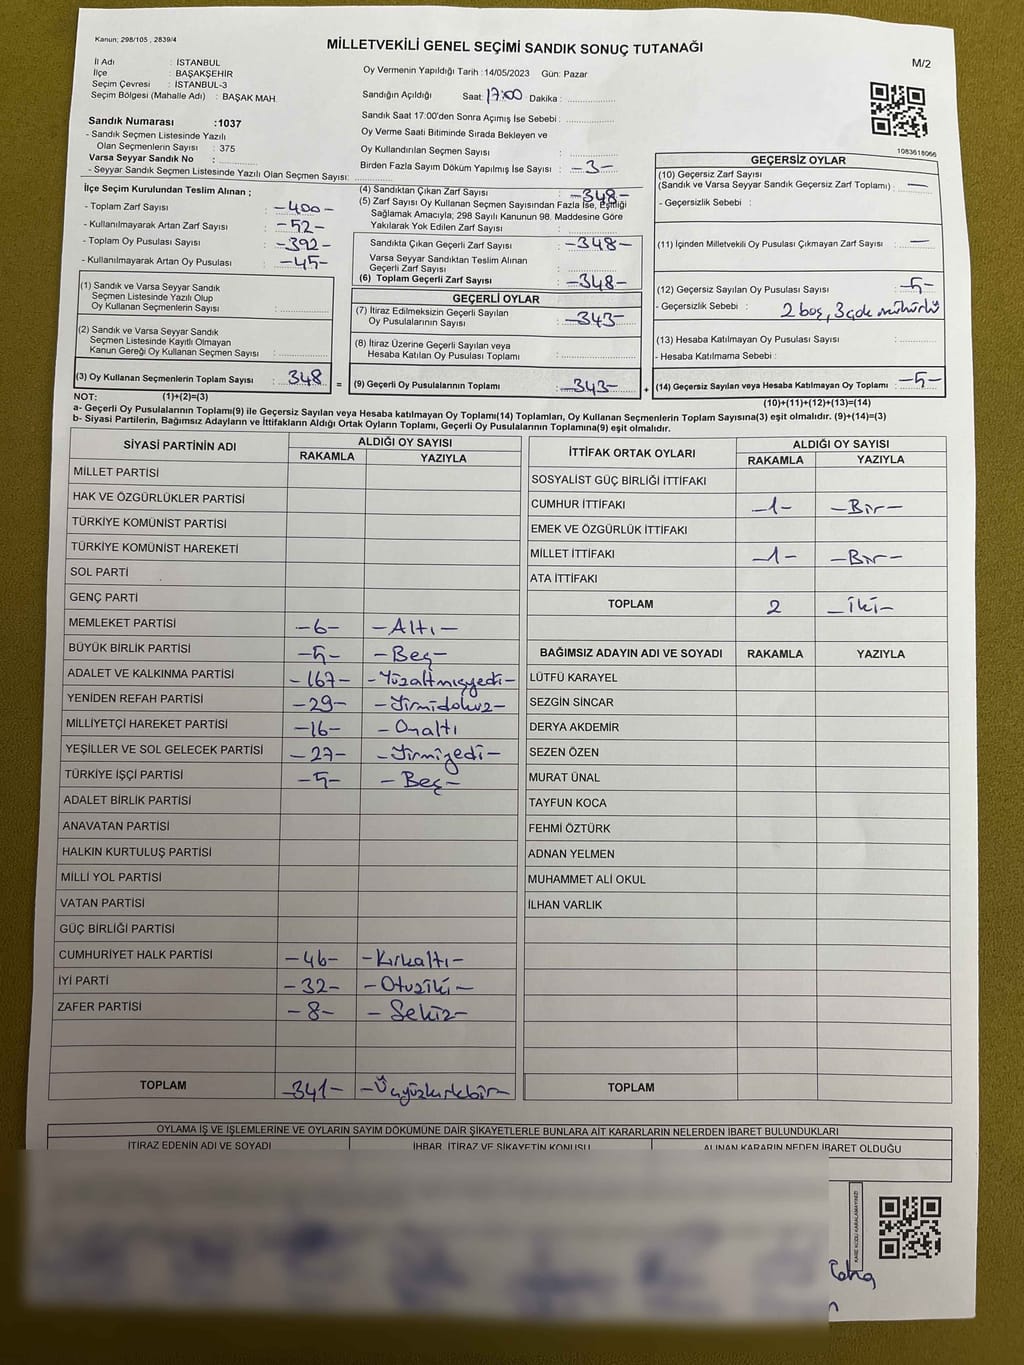 Kanun; 298/105 , 2839/4
MİLLETVEKİLİ GENEL SEÇİMİ SANDIK SONUÇ TUTANAĞI
M/2
İl Adı : İSTANBUL
İlçe : BAŞAKŞEHİR
Seçim Çevresi : İSTANBUL-3
Seçim Bölgesi (Mahalle Adı) : BAŞAK MAH.
Sandık Numarası :1037
- Sandık Seçmen Listesinde Yazılı
Olan Seçmenlerin Sayısı : 375
Varsa Seyyar Sandık No :
- Seyyar Sandık Seçmen Listesinde Yazılı Olan Seçmen Sayısı:
Oy Vermenin Yapıldığı Tarih :14/05/2023 Gün: Pazar
Sandığın Açıldığı Saat: 17:00 Dakika :
Sandık Saat 17:00'den Sonra Açımış İse Sebebi :
Oy Verme Saati Bitiminde Sırada Bekleyen ve
Oy Kullandırılan Seçmen Sayısı :
Birden Fazla Sayım Döküm Yapılmış İse Sayısı : -3-
1083618066
İlçe Seçim Kurulundan Teslim Alınan ;
- Toplam Zarf Sayısı : -400-
- Kullanılmayarak Artan Zarf Sayısı : -52-
- Toplam Oy Pusulası Sayısı : -392-
- Kullanılmayarak Artan Oy Pusulası : -45-
(1) Sandık ve Varsa Seyyar Sandık
Seçmen Listesinde Yazılı Olup
Oy Kullanan Seçmen Sayısı :
(2) Sandık ve Varsa Seyyar Sandık
Seçmen Listesinde Kayıtlı Olmayan
Kanun Gereği Oy Kullanan Seçmen Sayısı :
(3) Oy Kullanan Seçmenlerin Toplam Sayısı : 348 =
(4) Sandıktan Çıkan Zarf Sayısı : -348-
(5) Zarf Sayısı Oy Kullanan Seçmen Sayısından Fazla İse, Eşitliği
Sağlamak Amacıyla; 298 Sayılı Kanunun 98. Maddesine Göre
Yakılarak Yok Edilen Zarf Sayısı :
Sandıkta Çıkan Geçerli Zarf Sayısı : -348-
Varsa Seyyar Sandıktan Teslim Alınan
Geçerli Zarf Sayısı :
(6) Toplam Geçerli Zarf Sayısı : -348-
GEÇERLİ OYLAR
(7) İtiraz Edilmeksizin Geçerli Sayılan
Oy Pusulalarının Sayısı : -343-
(8) İtiraz Üzerine Geçerli Sayılan veya
Hesaba Katılan Oy Pusulası Toplamı :
(9) Geçerli Oy Pusulalarının Toplamı : -343- +
GEÇERSİZ OYLAR
(10) Geçersiz Zarf Sayısı
(Sandık ve Varsa Seyyar Sandık Geçersiz Zarf Toplamı) : —
- Geçersizlik Sebebi :
(11) İçinden Milletvekili Oy Pusulası Çıkmayan Zarf Sayısı : —
(12) Geçersiz Sayılan Oy Pusulası Sayısı : -5-
- Geçersizlik Sebebi : 2 boş, 3 çok mühürlü
(13) Hesaba Katılmayan Oy Pusulası Sayısı :
- Hesaba Katılmama Sebebi :
(14) Geçersiz Sayılan veya Hesaba Katılmayan Oy Toplamı : -5-
NOT: (1)+(2)=(3)
(10)+(11)+(12)+(13)=(14)
a- Geçerli Oy Pusulalarının Toplamı(9) ile Geçersiz Sayılan veya Hesaba katılmayan Oy Toplamı(14) Toplamları, Oy Kullanan Seçmenlerin Toplam Sayısına(3) eşit olmalıdır. (9)+(14)=(3)
b- Siyasi Partilerin, Bağımsız Adayların ve İttifakların Aldığı Ortak Oyların Toplamı, Geçerli Oy Pusulalarının Toplamına(9) eşit olmalıdır.
SİYASİ PARTİNİN ADI ALDIĞI OY SAYISI
RAKAMLA YAZIYLA
MİLLET PARTİSİ
HAK VE ÖZGÜRLÜKLER PARTİSİ
TÜRKİYE KOMÜNİST PARTİSİ
TÜRKİYE KOMÜNİST HAREKETİ
SOL PARTİ
GENÇ PARTİ
MEMLEKET PARTİSİ -6- -Altı-
BÜYÜK BİRLİK PARTİSİ -5- -Beş-
ADALET VE KALKINMA PARTİSİ -167- -Yüzaltmışyedi-
YENİDEN REFAH PARTİSİ -29- -Yirmidokuz-
MİLLİYETÇİ HAREKET PARTİSİ -16- -Onaltı
YEŞİLLER VE SOL GELECEK PARTİSİ -27- -Yirmiyedi-
TÜRKİYE İŞÇİ PARTİSİ -5- -Beş-
ADALET BİRLİK PARTİSİ
ANAVATAN PARTİSİ
HALKIN KURTULUŞ PARTİSİ
MİLLİ YOL PARTİSİ
VATAN PARTİSİ
GÜÇ BİRLİĞİ PARTİSİ
CUMHURİYET HALK PARTİSİ -46- -Kırkaltı-
İYİ PARTİ -32- -Otuziki-
ZAFER PARTİSİ -8- -Sekiz-
TOPLAM -341- -Üçyüzkırkbir-
İTTİFAK ORTAK OYLARI ALDIĞI OY SAYISI
RAKAMLA YAZIYLA
SOSYALİST GÜÇ BİRLİĞİ İTTİFAKI
CUMHUR İTTİFAKI -1- -Bir-
EMEK VE ÖZGÜRLÜK İTTİFAKI
MİLLET İTTİFAKI -1- -Bir-
ATA İTTİFAKI
TOPLAM 2 -İki-
BAĞIMSIZ ADAYIN ADI VE SOYADI RAKAMLA YAZIYLA
LÜTFÜ KARAYEL
SEZGİN SİNCAR
DERYA AKDEMİR
SEZEN ÖZEN
MURAT ÜNAL
TAYFUN KOCA
FEHMİ ÖZTÜRK
ADNAN YELMEN
MUHAMMET ALİ OKUL
İLHAN VARLIK
TOPLAM
OYLAMA İŞ VE İŞLEMLERİNE VE OYLARIN SAYIM DÖKÜMÜNE DAİR ŞİKAYETLERLE BUNLARA AİT KARARLARIN NELERDEN İBARET BULUNDUKLARI
İTİRAZ EDENİN ADI VE SOYADI İHBAR, İTİRAZ VE ŞİKAYETİN KONUSU ALINAN KARARIN NEDEN İBARET OLDUĞU
KARE KODU KARALAMAYINIZ!